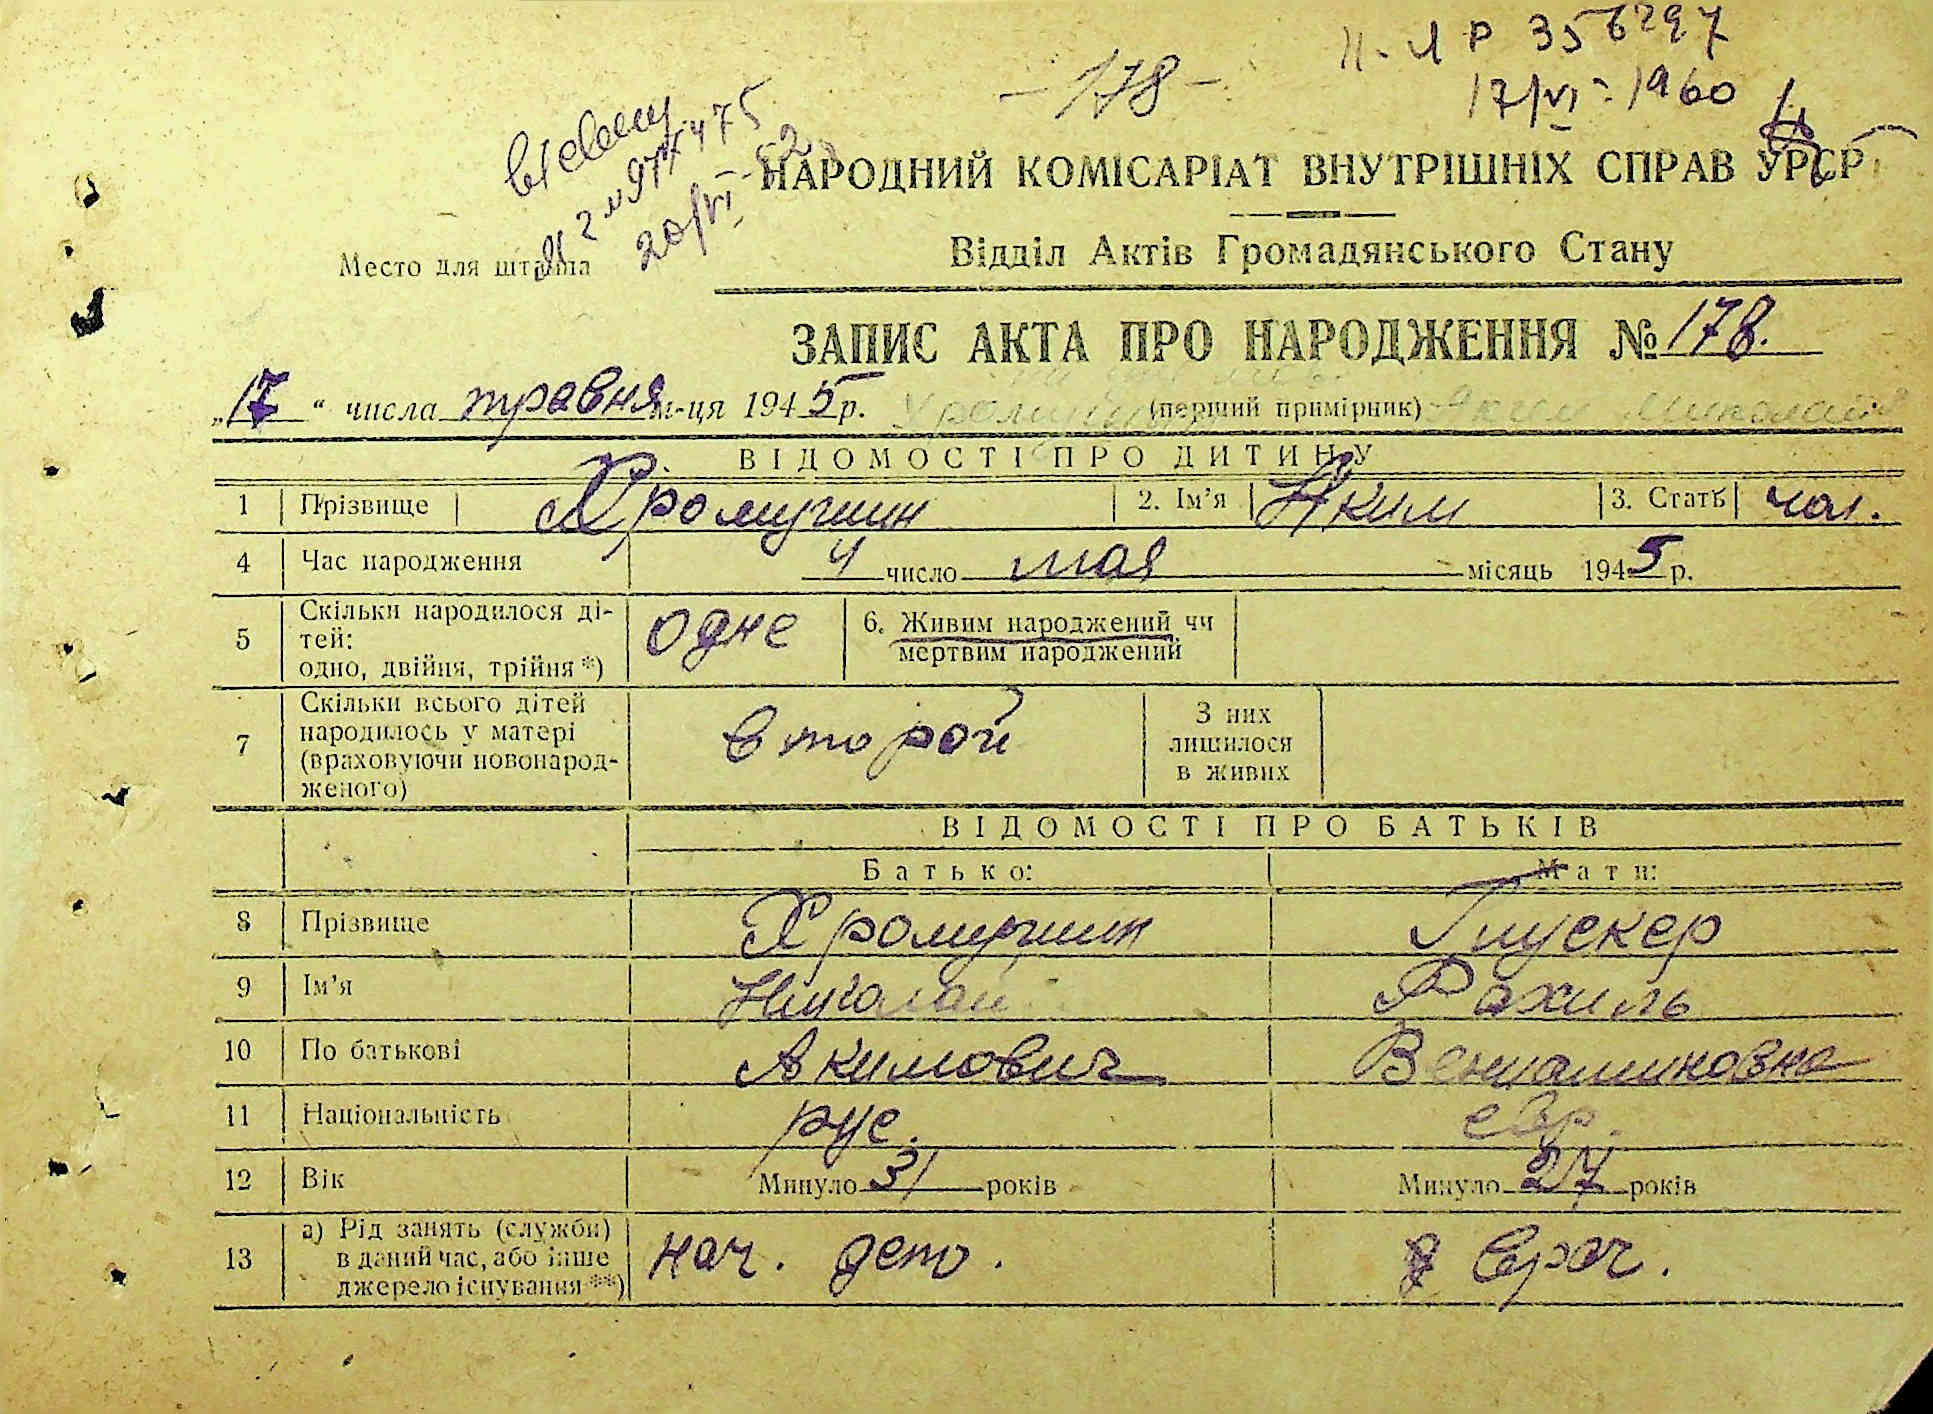 - 178 -
II-ЛР 356297
17/VI-1960
НАРОДНИЙ КОМІСАРІАТ ВНУТРІШНІХ СПРАВ УРСР
20/VI-52
Место для штампа
Відділ Актів Громадянського Стану
ЗАПИС АКТА ПРО НАРОДЖЕННЯ № 178.
„17“ числа травня м-ця 1945 р. (перший примірник)
ВІДОМОСТІ ПРО ДИТИНУ
1 Прізвище Хромушин 2. Ім'я Яким 3. Стать чол.
4 Час народження 4 число мая місяць 1945 р.
5 Скільки народилося ді-
тей:
одно, двійня, трійня *) одне 6. Живим народжений чи
мертвим народжений
7 Скільки всього дітей
народилось у матері
(враховуючи новонарод-
женого) второй З них
лишилося
в живих
ВІДОМОСТІ ПРО БАТЬКІВ
Батько: Мати:
8 Прізвище Хромушин Глускер
9 Ім'я Николай Рахиль
10 По батькові Акимович Вениаминовна
11 Національність рус. евр.
12 Вік Минуло 31 років Минуло 27 років
13 а) Рід занять (служби)
в даний час, або інше
джерело існування **) нач. депо. врач.